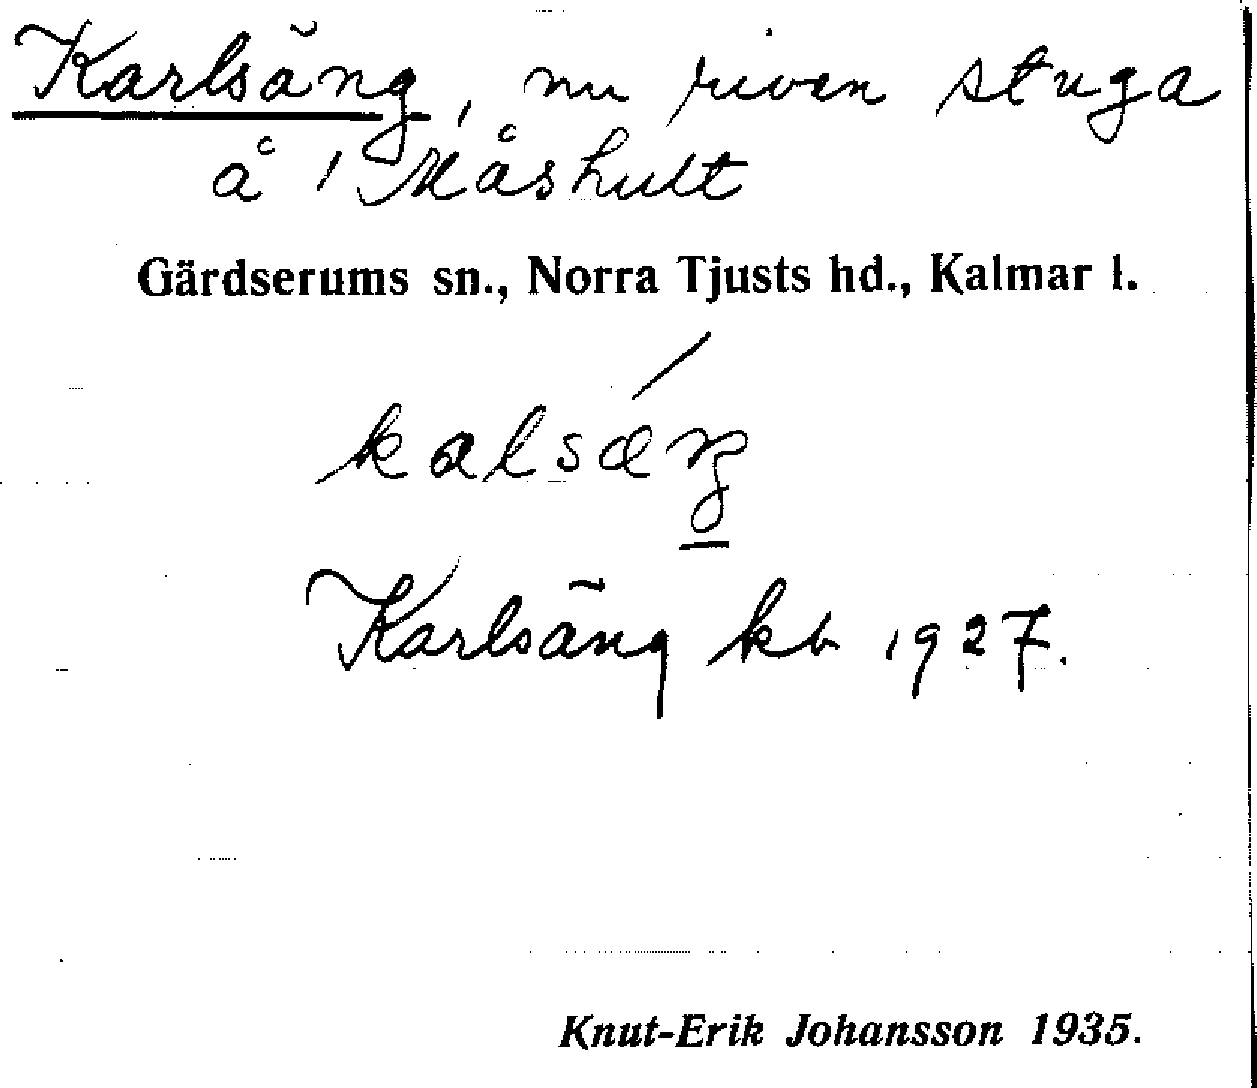 Karlsäng, nu riven stuga
å 1 Måshult
Gärdserums sn., Norra Tjusts hd., Kalmar l.
kalsæŋ
Karlsäng kb 1927.
Knut-Erik Johansson 1935.